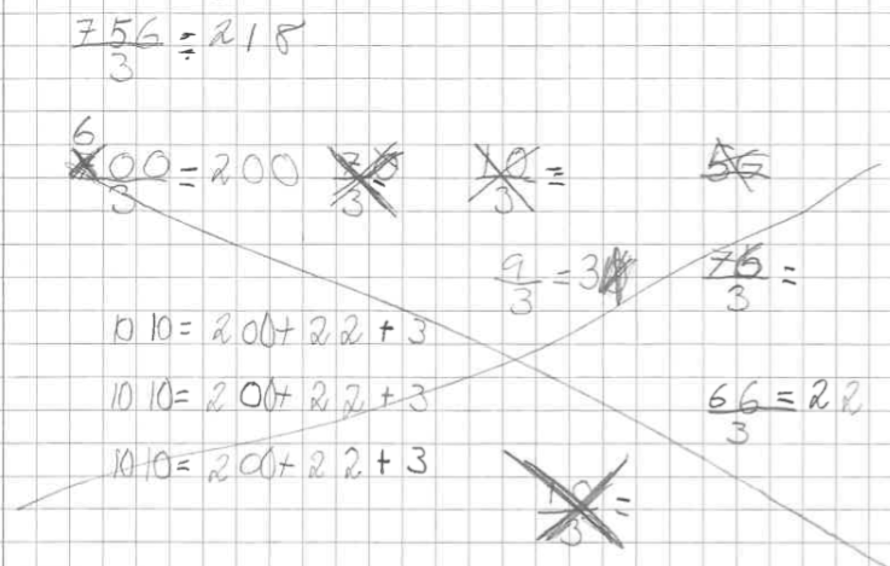 756/3 = 218
600/3 = 200
9/3 = 3
76/3 =
10 10 = 200 + 22 + 3
10 10 = 200 + 22 + 3
66/3 = 22
10 10 = 200 + 22 + 3